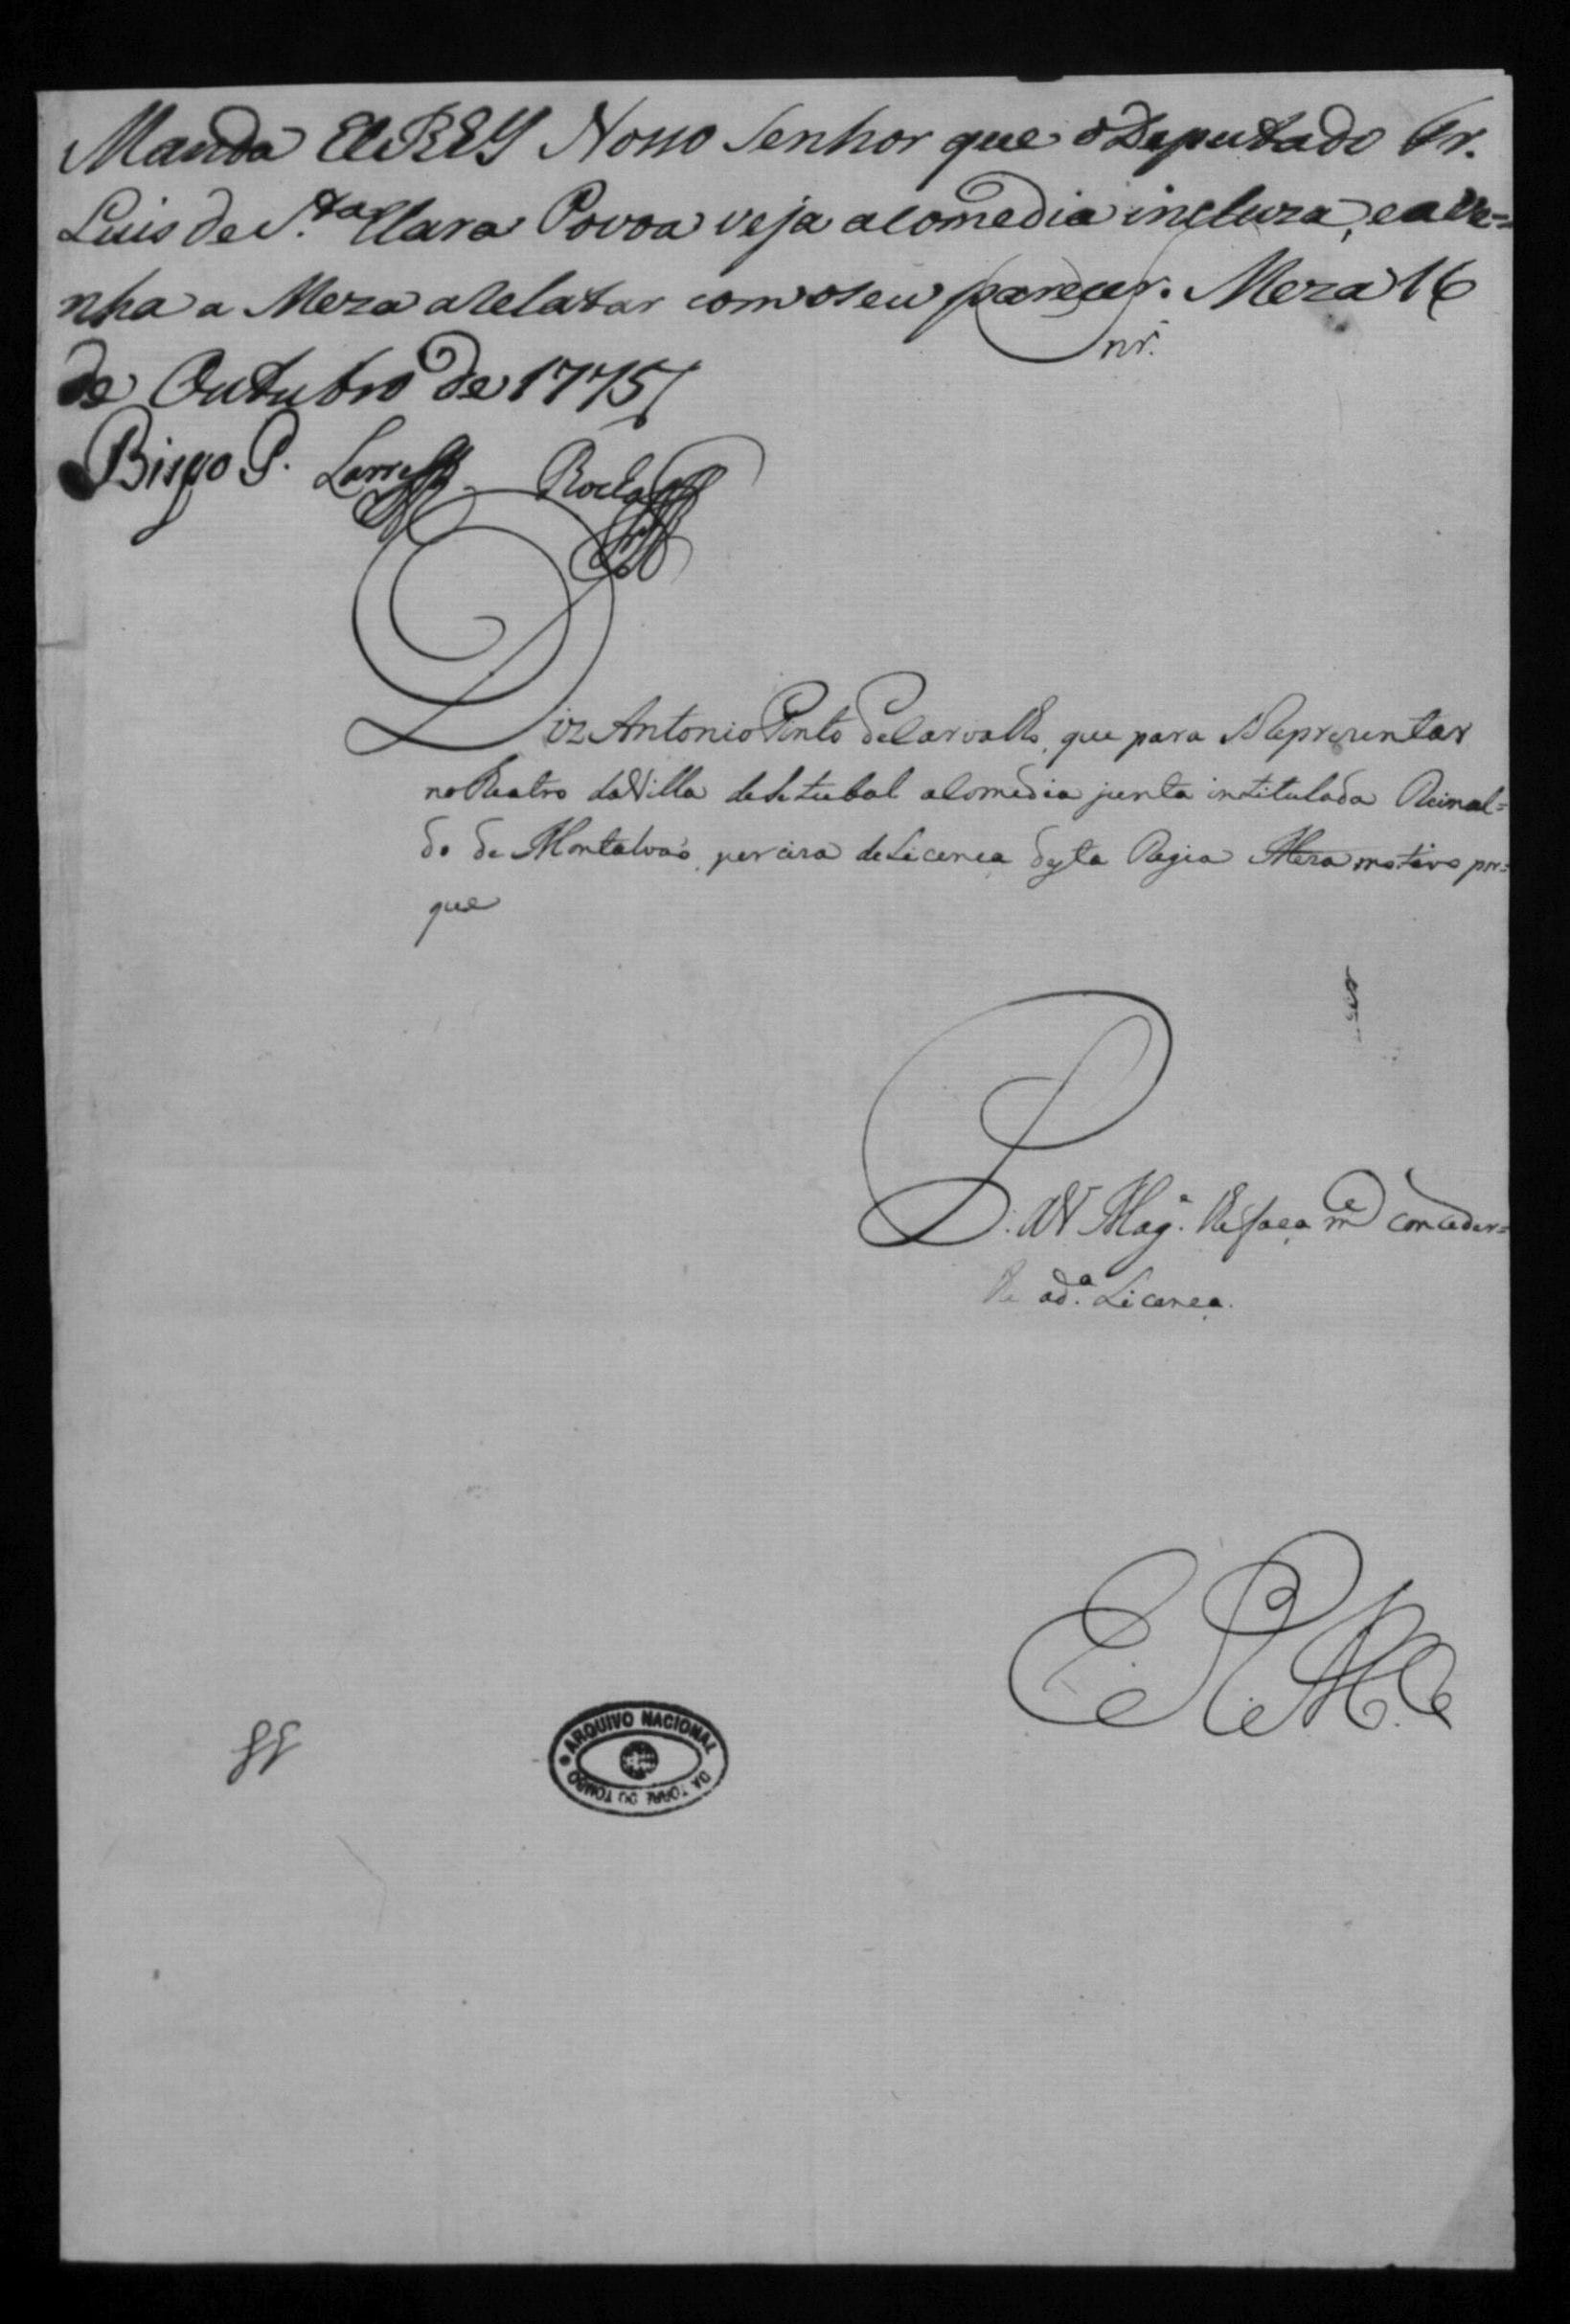 Manda El REY Nosso Senhor que o Deputado Fr.
Luis de S.ta Clara Povoa veja a Comedia incluza, e a ve=
nha a Meza a Relatar com o seu parecer. Meza 16
nr.
de Outubro de 1775
Bispo P. Rocha
Diz Antonio Pinto de Carvalho, que para Reprezentar
no Theatro da Villa de Setubal a Comedia junta intitulada Reinal=
do de Montalvaõ, perciza de Licença desta Regia Meza motivo por=
que
P. a V Mag.e lhe faça m.ce conceder=
lhe a d.a Licença.
E R M.ce
ARQUIVO NACIONAL
DA TORRE DO TOMBO